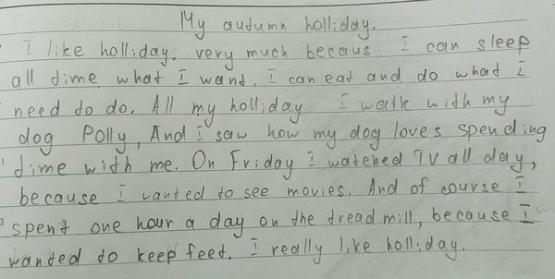 My autumn holliday.
I like holliday. very much becaus I can sleep
all time what I want. I can eat and do what I
need to do. All my holliday I walk with my
dog Polly, And I saw how my dog loves spending
time with me. On Friday I watched TV all day,
because I wanted to see movies. And of course I
spent one hour a day on the treadmill, because I
wanted to keep feet. I really like holliday.